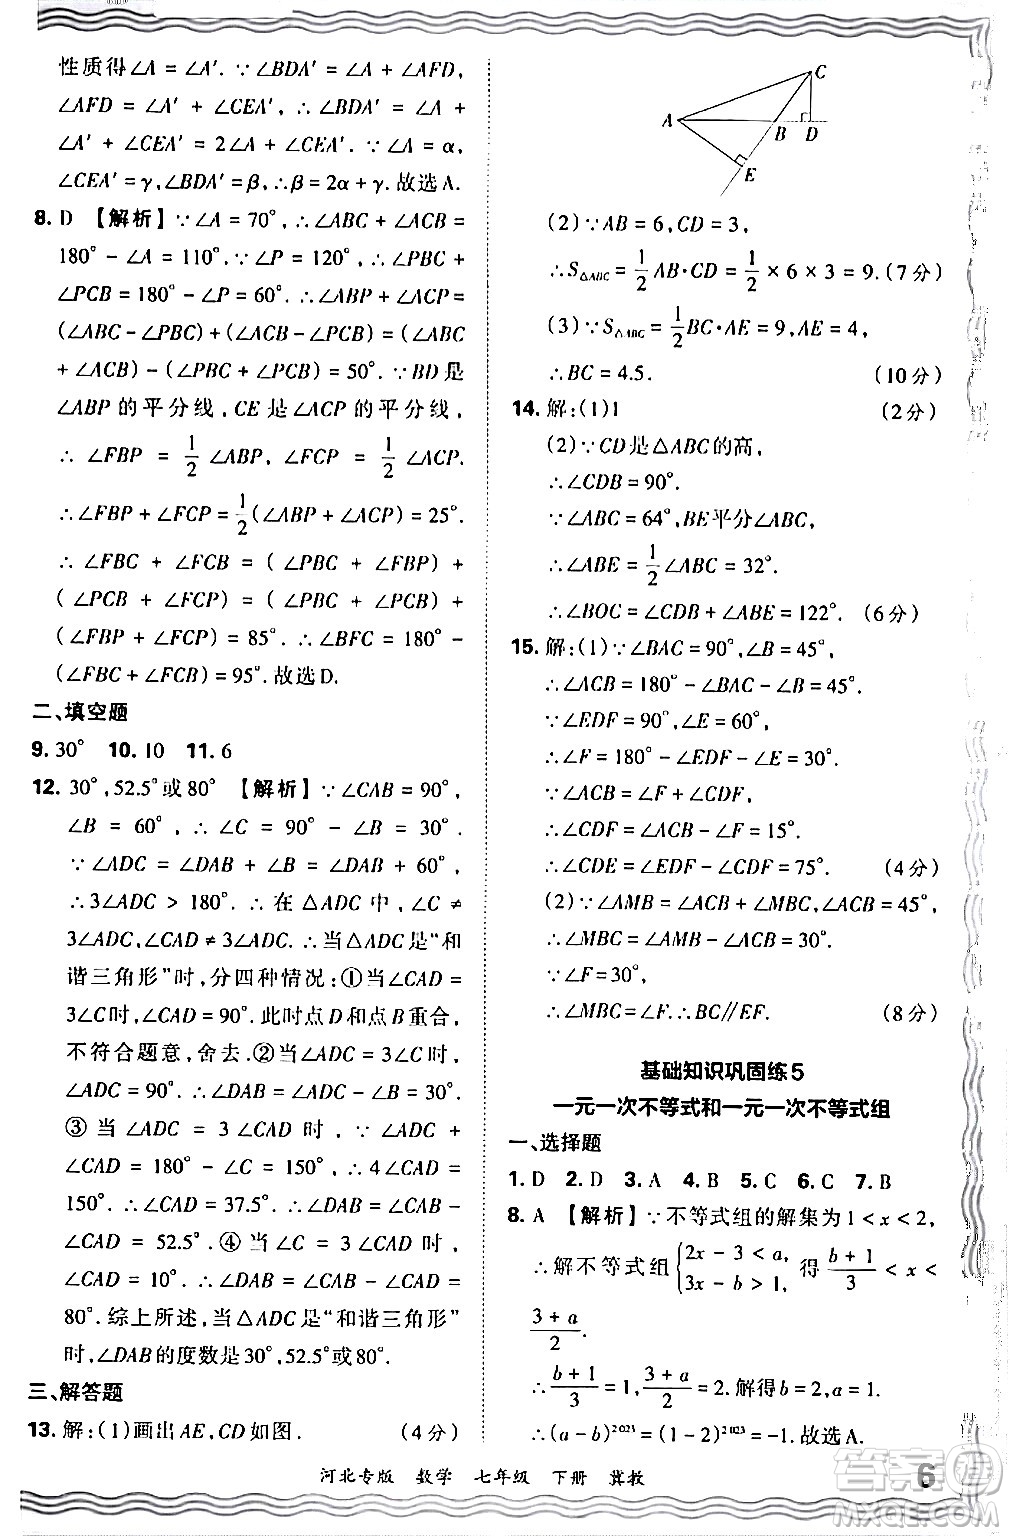 性质得∠A = ∠A′. ∵∠BDA′ = ∠A + ∠AFD,
∠AFD = ∠A′ + ∠CEA′, ∴∠BDA′ = ∠A +
∠A′ + ∠CEA′ = 2∠A + ∠CEA′. ∵∠A = α,
∠CEA′ = γ, ∠BDA′ = β, ∴β = 2α + γ. 故选A.
8. D 【解析】∵∠A = 70°, ∴∠ABC + ∠ACB =
180° − ∠A = 110°. ∵∠P = 120°, ∴∠PBC +
∠PCB = 180° − ∠P = 60°. ∴∠ABP + ∠ACP =
(∠ABC − ∠PBC) + (∠ACB − ∠PCB) = (∠ABC
+ ∠ACB) − (∠PBC + ∠PCB) = 50°. ∵BD是
∠ABP的平分线, CE是∠ACP的平分线,
∴ ∠FBP = 1/2 ∠ABP, ∠FCP = 1/2 ∠ACP.
∴∠FBP + ∠FCP = 1/2(∠ABP + ∠ACP) = 25°.
∴ ∠FBC + ∠FCB = (∠PBC + ∠FBP) +
(∠PCB + ∠FCP) = (∠PBC + ∠PCB) +
(∠FBP + ∠FCP) = 85°. ∴∠BFC = 180° −
(∠FBC + ∠FCB) = 95°. 故选D.
二、填空题
9. 30° 10. 10 11. 6
12. 30°, 52.5°或80° 【解析】∵∠CAB = 90°,
∠B = 60°, ∴∠C = 90° − ∠B = 30°.
∵∠ADC = ∠DAB + ∠B = ∠DAB + 60°,
∴3∠ADC > 180°. ∴在△ADC中, ∠C ≠
3∠ADC, ∠CAD ≠ 3∠ADC. ∴当△ADC是“和
谐三角形”时, 分四种情况: ①当∠CAD =
3∠C时, ∠CAD = 90°. 此时点D和点B重合,
不符合题意, 舍去. ②当∠ADC = 3∠C时,
∠ADC = 90°. ∴∠DAB = 90° − ∠B = 30°.
③当∠ADC = 3∠CAD时, ∵∠ADC +
∠CAD = 180° − ∠C = 150°, ∴4∠CAD =
150°. ∴∠CAD = 37.5°. ∴∠DAB = 90° −
∠CAD = 52.5°. ④当∠C = 3∠CAD时,
∠CAD = 10°. ∴∠DAB = ∠CAB − ∠CAD =
80°. 综上所述, 当△ADC是“和谐三角形”
时, ∠DAB的度数是30°, 52.5°或80°.
三、解答题
13. 解: (1)画出AE, CD如图. (4分)
A
B
C
D
E
(2)∵AB = 6, CD = 3,
∴S△ABC = 1/2 AB·CD = 1/2 × 6 × 3 = 9. (7分)
(3)∵S△ABC = 1/2 BC·AE = 9, AE = 4,
∴BC = 4.5. (10分)
14. 解: (1)1 (2分)
(2)∵CD是△ABC的高,
∴∠CDB = 90°.
∵∠ABC = 64°, BE平分∠ABC,
∴∠ABE = 1/2 ∠ABC = 32°.
∴∠BOC = ∠CDB + ∠ABE = 122°. (6分)
15. 解: (1)∵∠BAC = 90°, ∠B = 45°,
∴∠ACB = 180° − ∠BAC − ∠B = 45°.
∵∠EDF = 90°, ∠E = 60°,
∴∠F = 180° − ∠EDF − ∠E = 30°.
∵∠ACB = ∠F + ∠CDF,
∴∠CDF = ∠ACB − ∠F = 15°.
∴∠CDE = ∠EDF − ∠CDF = 75°. (4分)
(2)∵∠AMB = ∠ACB + ∠MBC, ∠ACB = 45°,
∴∠MBC = ∠AMB − ∠ACB = 30°.
∵∠F = 30°,
∴∠MBC = ∠F. ∴BC∥EF. (8分)
基础知识巩固练5
一元一次不等式和一元一次不等式组
一、选择题
1. D 2. D 3. A 4. B 5. C 6. C 7. B
8. A 【解析】∵不等式组的解集为1 < x < 2,
∴解不等式组{2x − 3 < a, 3x − b > 1, 得 (b + 1)/3 < x <
(3 + a)/2.
∴(b + 1)/3 = 1, (3 + a)/2 = 2. 解得b = 2, a = 1.
∴(a − b)²⁰²³ = (1 − 2)²⁰²³ = −1. 故选A.
河北专版 数学 七年级 下册 冀教
6
答案圈
MXQE.COM